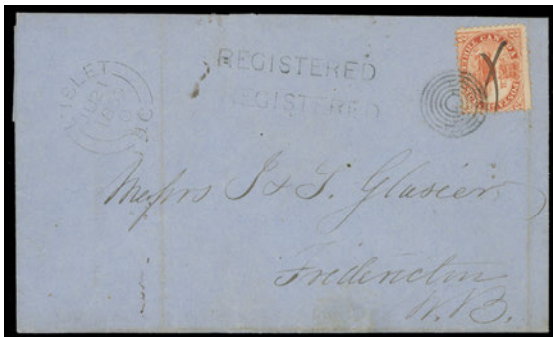 REGISTERED
REGISTERED
Messrs J & J. Glasier
Fredericton
N.B.